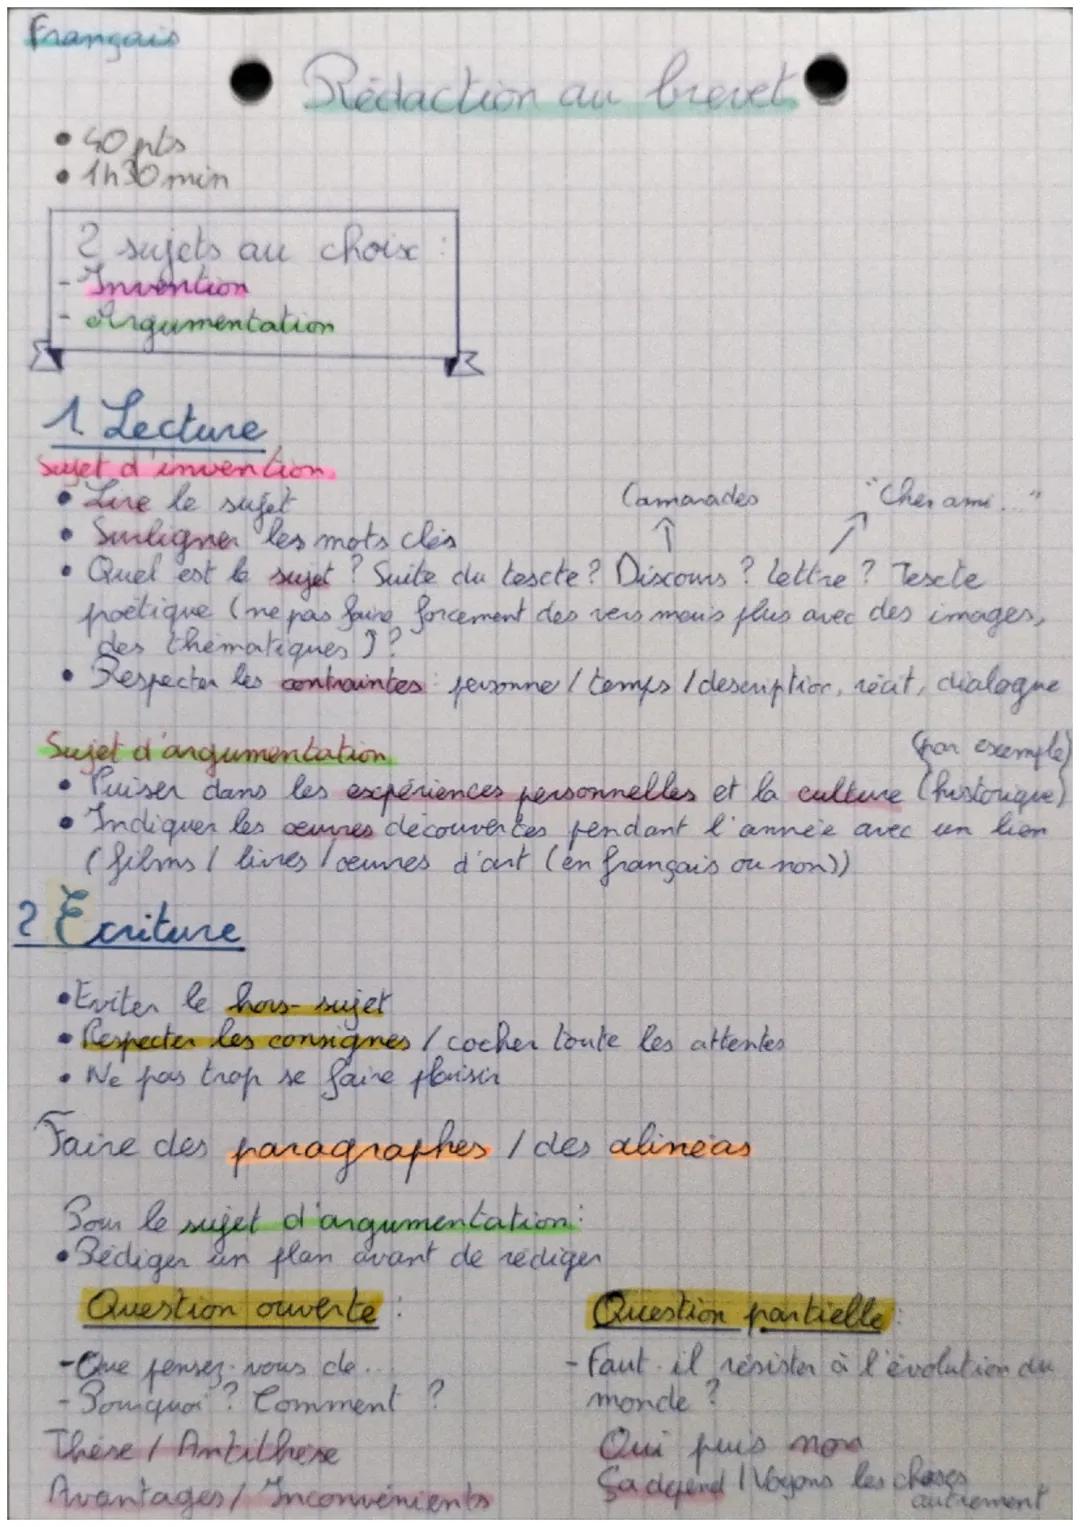 Français
Rédaction au brevet
• 40 pts
• 1h30min
2 sujets au choix :
- Invention
- Argumentation
1 Lecture
Sujet d'invention
• Lire le sujet
Camarades
"Cher ami..."
• Surligner les mots clés
• Quel est le sujet ? Suite du texte ? Discours ? Lettre ? Texte
poétique (ne pas faire forcement des vers mais plus avec des images,
des thématiques) ?
• Respecter les contraintes : personne / temps / description, récit, dialogue
Sujet d'argumentation
(par exemple)
• Puiser dans les expériences personnelles et la culture (historique)
• Indiquer les œuvres découvertes pendant l'année avec un lien
(films / livres / œuvres d'art (en français ou non))
2 Ecriture
• Eviter le hors-sujet
• Respecter les consignes / cocher toute les attentes
• Ne pas trop se faire plaisir
Faire des paragraphes / des alinéas
Pour le sujet d'argumentation :
• Rédiger un plan avant de rédiger
Question ouverte :
- Que pensez-vous de...
- Pourquoi ? Comment ?
Thèse / Antithèse
Avantages / Inconvénients
Question partielle :
- Faut-il résister à l'évolution du
monde ?
Oui puis non
Ça dépend / Voyons les choses
autrement